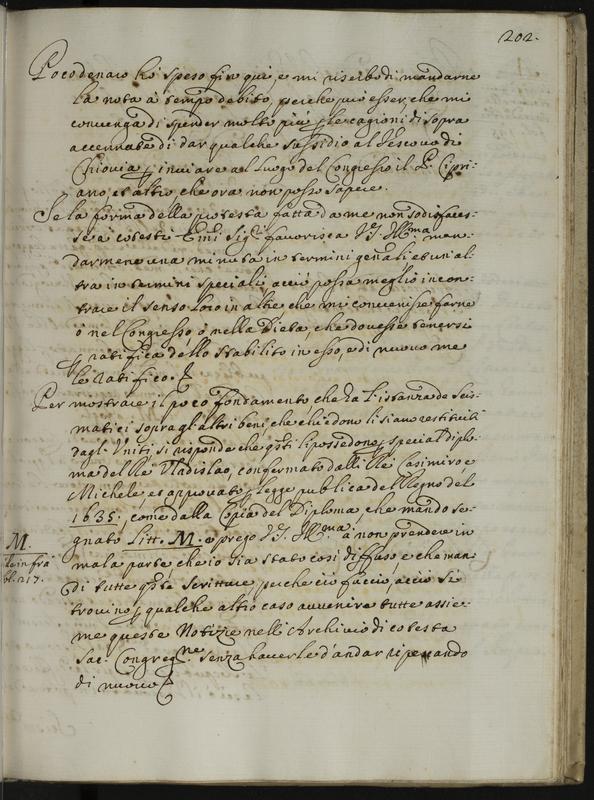 202.
Poco denaro hò speso fin quì, e mi riserbo di mandarne
la nota à tempo debito, perche può esser, che mi
convenga di spender molto più p le cagioni di sopra
accennate di dar qualche sussidio al Vescovo di
Chiovia, p inviare al luogo del Congresso il P. Cipri-
ano, et altro che ora non posso sapere.
Se la forma della protesta fatta da me non sodisfaces-
se à cotesti Emi Sigri favorisca V.S. Illma man-
darmene una minuta in termini gen̄ali et un'al-
tra in termini speciali, acciò possa meglio incon-
trare il senso loro in altre, che mi convenisse farne
ò nel Congresso, ò nella Dieta, che dovesse tenersi
p ratifica dello stabilito in esso, e di nuovo me
le ratifico.
Per mostrare il poco fondamento che hà l'istanza de Scis-
matici sopra gl'altri beni, che chiedono li siano restituiti
dagl'Uniti, si risponde che q̄sti li possedono p special diplo-
ma del Rè Vladislao, confermato dalli Rè Casimiro e
Michele et approvato p legge publica del Regno del
1635, come dalla Copia del Diploma che mando se-
gnato Litt. M. e prego V.S. Illma à non prendere in
M.
la infrà
bl. 217.
mala parte che io sia stato così diffuso, e che man-
di tutte q̄ste scritture, perche ciò faccio, acciò si
trovino p qualche altro caso avvenire tutte assie-
me queste Notizie nelli Archivio di cotesta
Sac. Congregne senza haverle d'andar ripescando
di nuovo